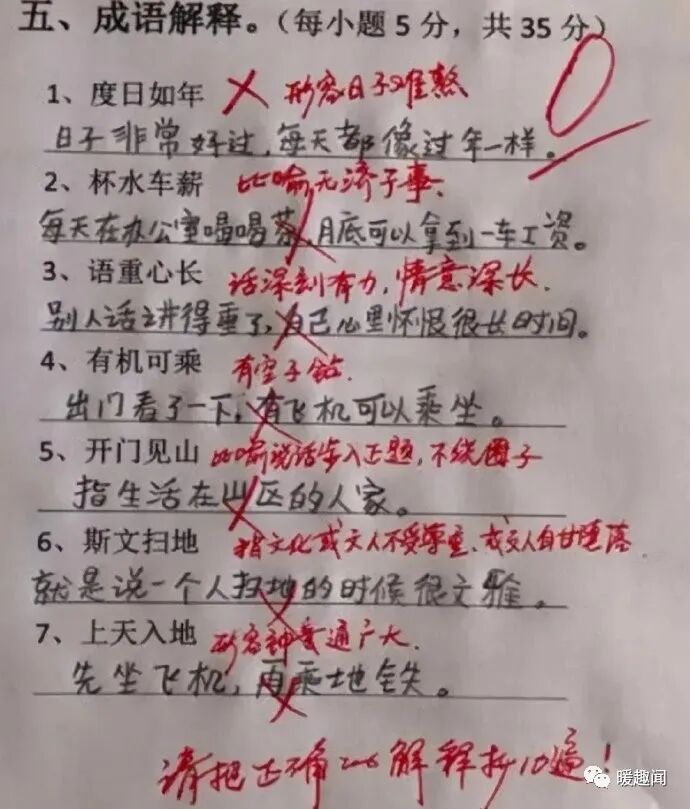 五、成语解释。（每小题5分，共35分）
0
1、度日如年 形容日子难熬
日子非常好过，每天都像过年一样。
2、杯水车薪 比喻无济于事、
每天在办公室喝喝茶，月底可以拿到一车工资。
3、语重心长 话深刻有力，情意深长.
别人话讲得重了，自己心里怀恨很长时间。
4、有机可乘 有空子钻.
出门看了一下，有飞机可以乘坐。
5、开门见山 比喻说话步入正题，不绕圈子
指生活在山区的人家。
6、斯文扫地 指文化或文人不受尊重、或文人自甘堕落.
就是说一个人扫地的时候很文雅。
7、上天入地 形容神通广大.
先坐飞机，再乘地铁。
请把正确的解释抄10遍！
暖趣闻